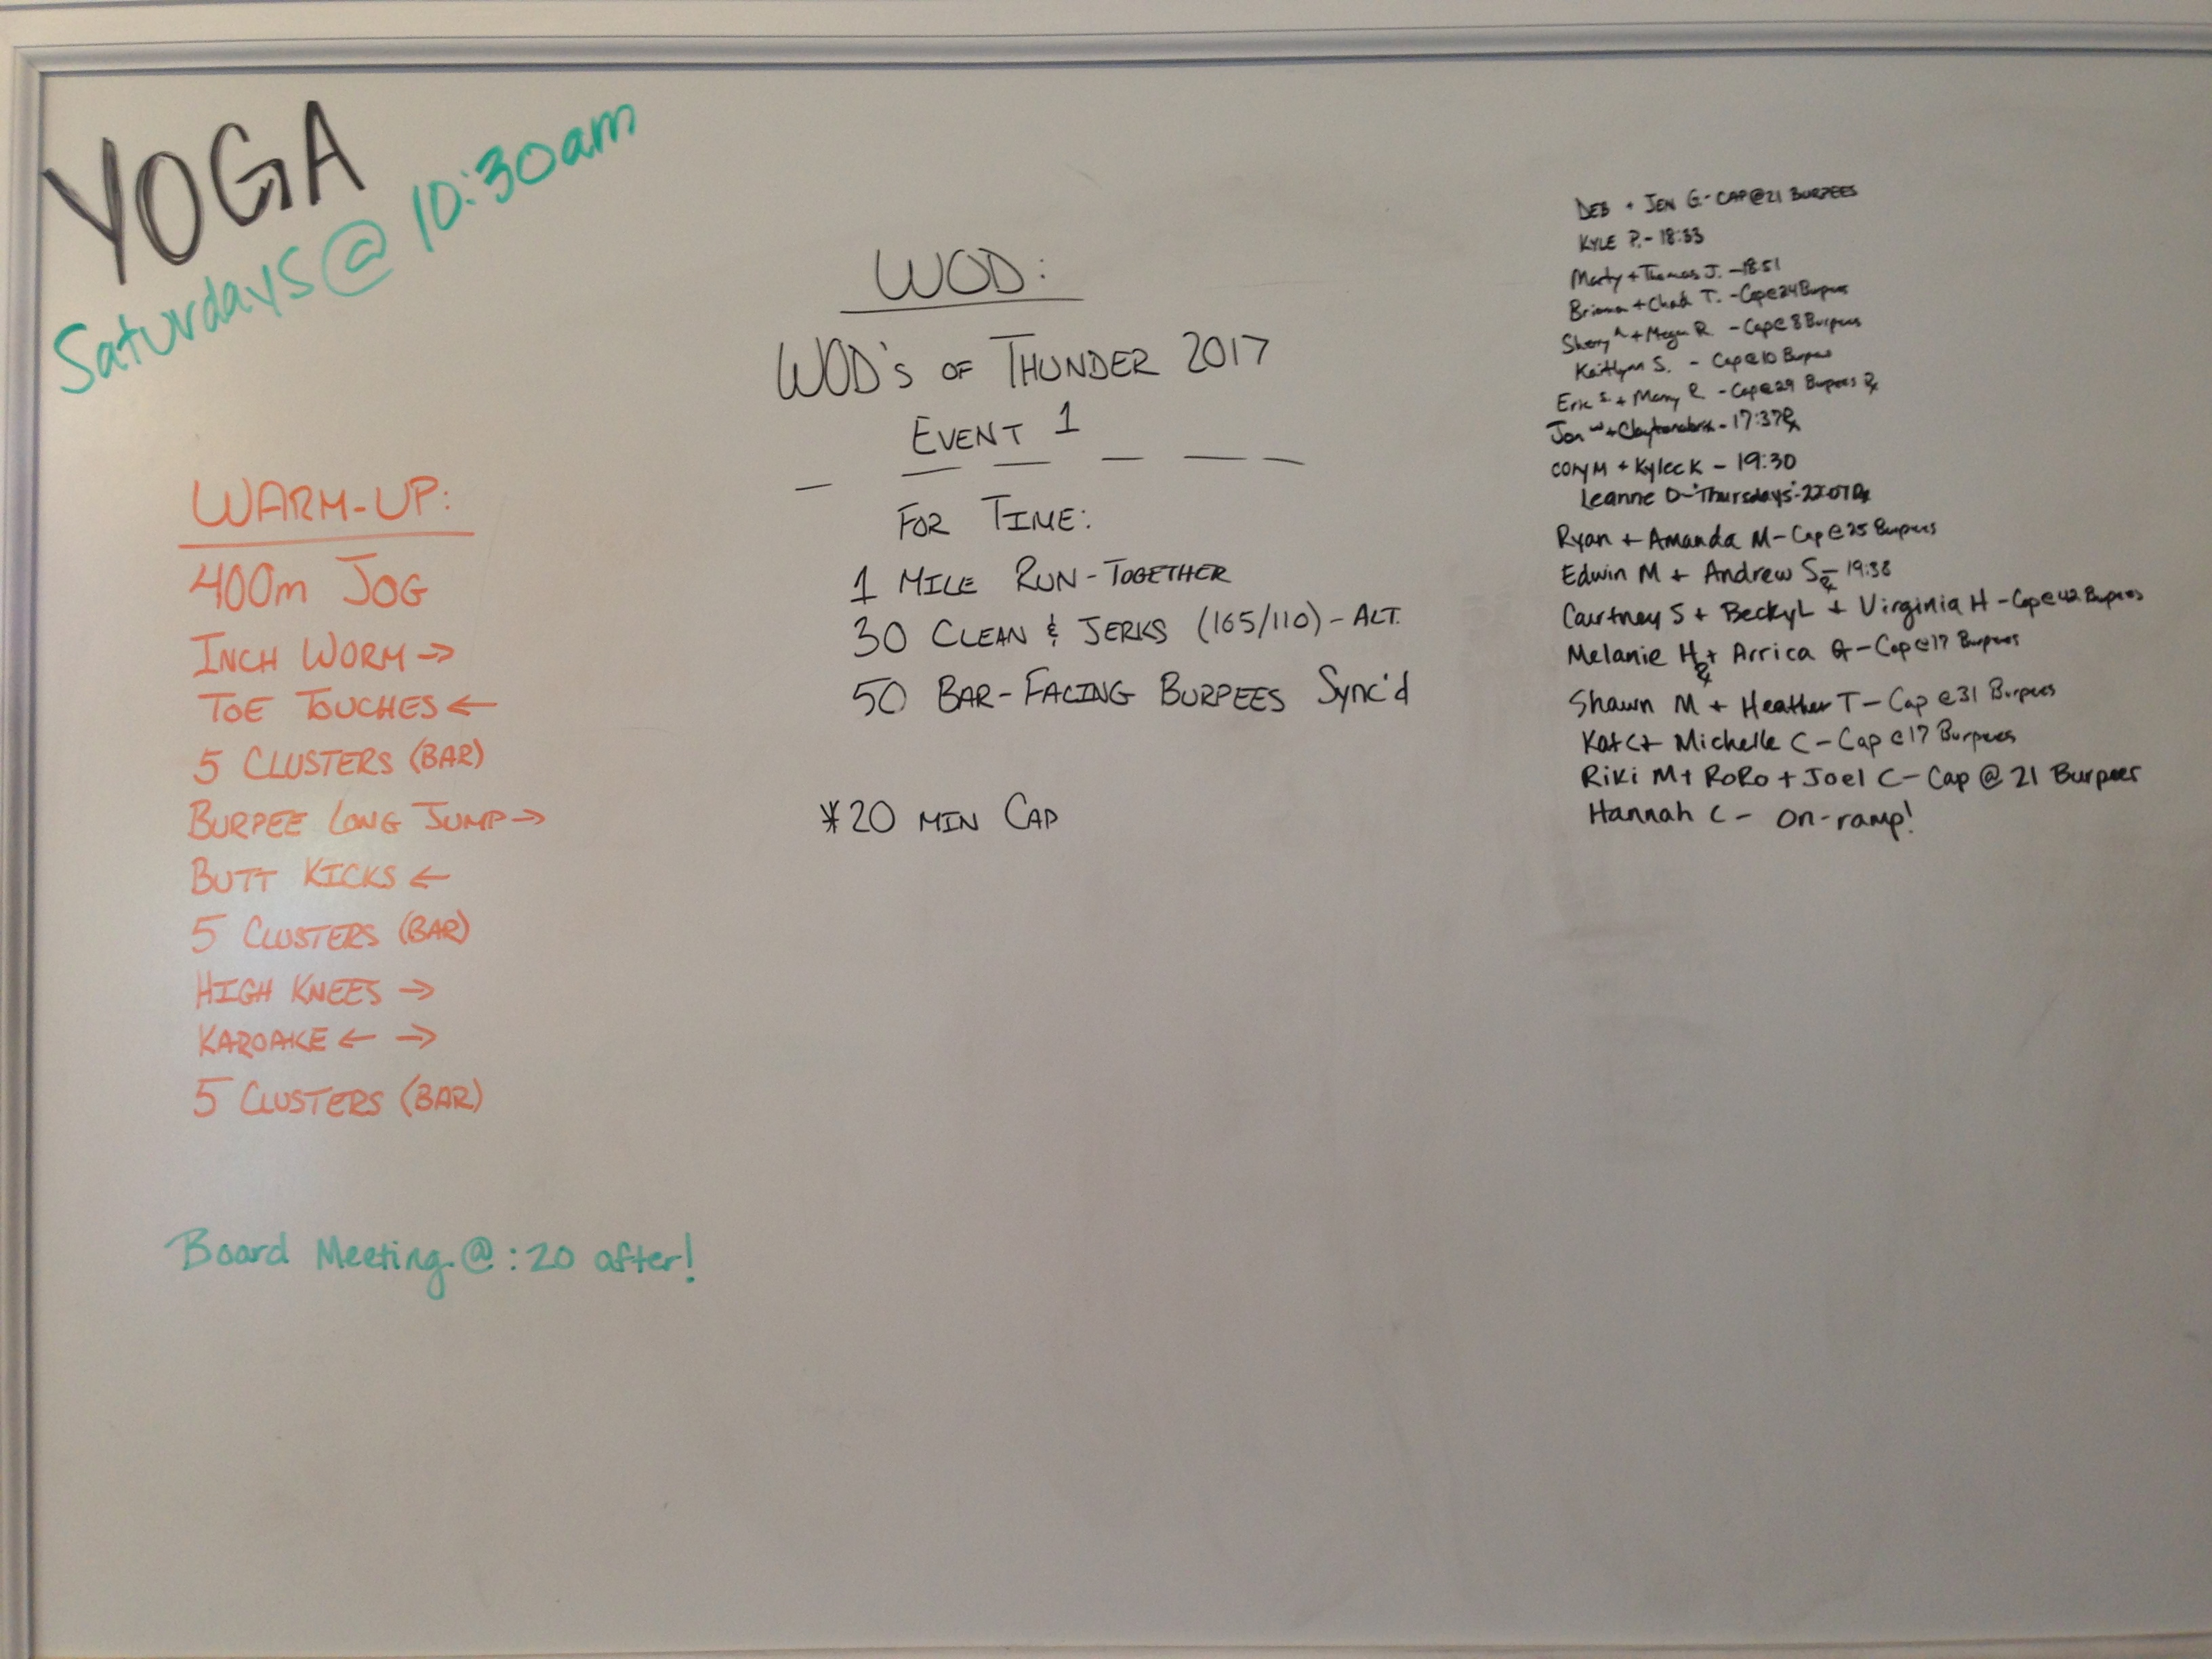 YOGA
Saturdays @ 10:30am
WARM-UP:
400m JOG
INCH WORM →
TOE TOUCHES ←
5 CLUSTERS (BAR)
BURPEE LONG JUMP →
BUTT KICKS ←
5 CLUSTERS (BAR)
HIGH KNEES →
KAROAKE ← →
5 CLUSTERS (BAR)
Board Meeting @ :20 after!
WOD:
WOD's OF THUNDER 2017
EVENT 1
FOR TIME:
1 MILE RUN - TOGETHER
30 CLEAN & JERKS (165/110) - ALT.
50 BAR-FACING BURPEES Sync'd
*20 MIN CAP
DEB + JEN G - CAP @ 21 BURPEES
KYLE P. - 18:33
Marty + Thomas J. - 18:51
Brianna + Chad T. - Cap @ 24 Burpees
Sherry A + Megan R. - Cap @ 8 Burpees
Kaitlynn S. - Cap @ 10 Burpees
Eric S + Marry R - Cap @ 29 Burpees Rx
Jon W + - 17:37 Rx
Cory M + Kylee K - 19:30
Leanne D - "Thursdays" - 22:07 Rx
Ryan + Amanda M - Cap @ 25 Burpees
Edwin M + Andrew S Rx - 19:38
Courtney S + Becky L + Virginia H - Cap @ 42 Burpees
Melanie H Rx + Arrica G - Cap @ 17 Burpees
Shawn M + Heather T - Cap @ 31 Burpees
Kat C + Michelle C - Cap @ 17 Burpees
Riki M + RoRo + Joel C - Cap @ 21 Burpees
Hannah C - On-ramp!